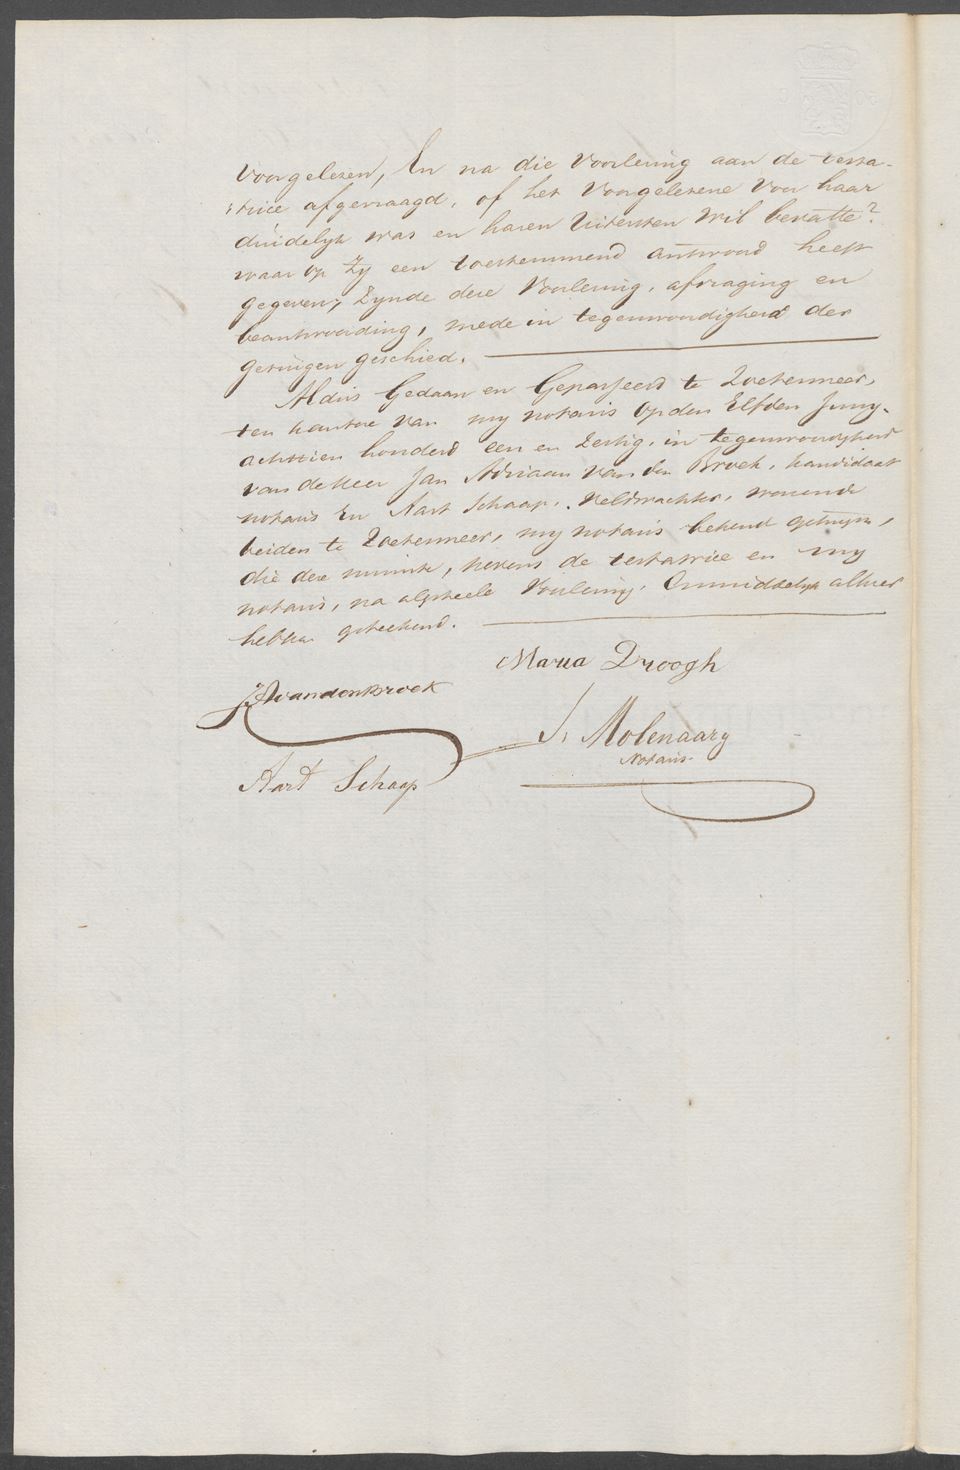 voorgelezen, En na die voorlezing aan de testa-
trice afgevraagd, of het voorgelezene voor haar
duidelyk was en haren Uitersten Wil bevatte?
waar op zy een toestemmend antwoord heeft
gegeven; zynde deze voorlezing, afvraging en
beantwoording, mede in tegenwoordigheid der
getuigen geschied.
Aldus Gedaan en Gepasseerd te Zoetermeer,
ten kantore van my notaris op den Elfden Juny
achttien honderd een en zestig, in tegenwoordigheid
van de Heer Jan Adriaan van den Broek, kandidaat
notaris En Aart Schaap, Veldwachter, wonende
beiden te Zoetermeer, my notaris bekend als getuigen,
die deze minute, nevens de testatrice en my
notaris, na algeheele voorlezing, Onmiddelyk alhier
hebben geteekend.
Maria Droogh
JA van den Broek
J. Molenaar
Notaris
Aart Schaap